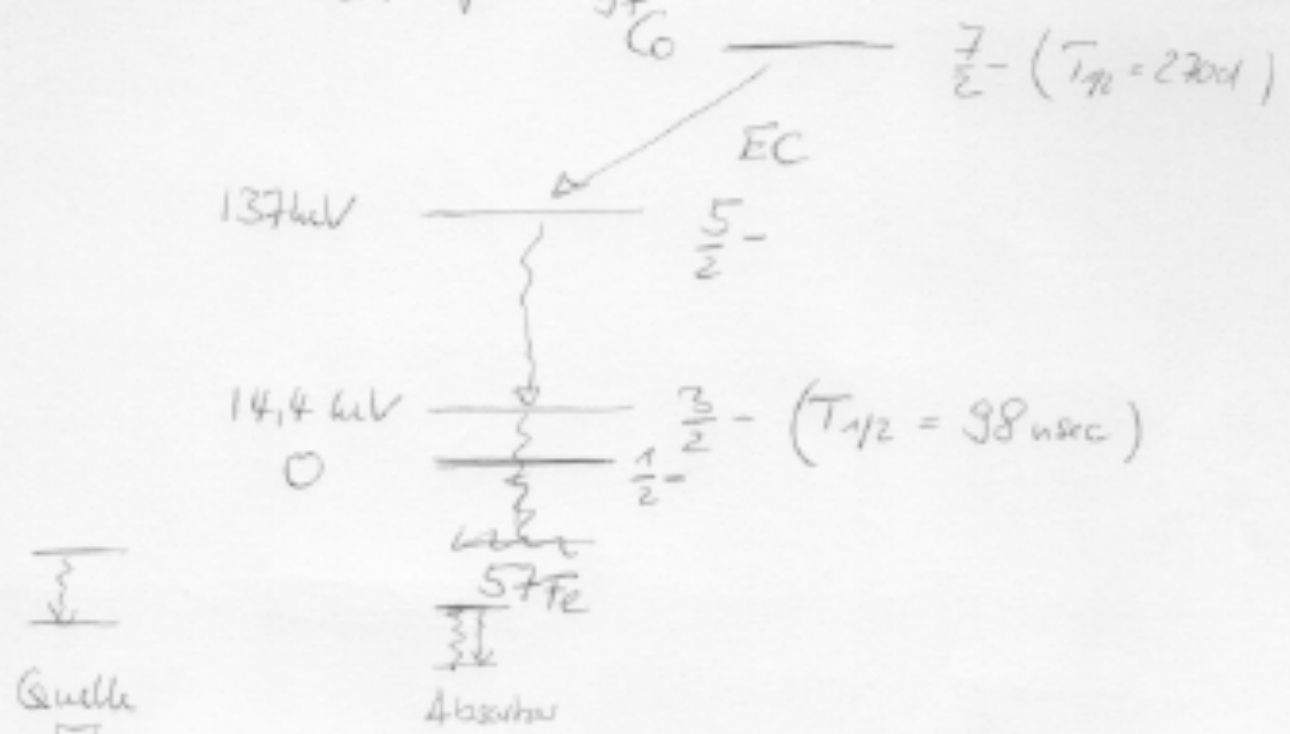 57
Co
7/2 - (T1/2 = 270d)
EC
137 keV
5/2 -
14,4 keV
3/2 - (T1/2 = 98 nsec)
0
1/2 -
57Fe
Quelle
Absorber